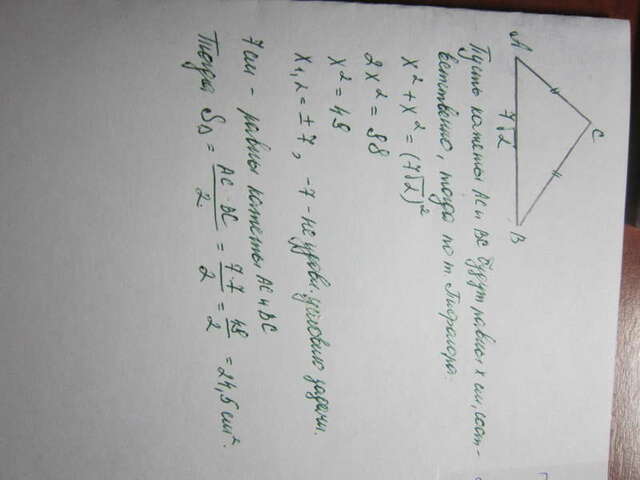 A
C
B
7√2
Пусть катеты AC и BC будут равны x см, соот-
ветственно, тогда по т. Пифагора:
x² + x² = (7√2)²
2x² = 98
x² = 49
x₁,₂ = ±7, -7 - не удовл. условию задачи.
7 см - равны катеты AC и BC
Тогда S△ = AC · BC / 2 = 7·7 / 2 = 49 / 2 = 24,5 см².